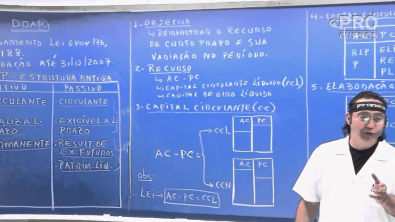 DOAR
DAMENTO LEI 6404/76,
188.
DAÇÃO ATÉ 31.12.2007.
- ESTRUTURA ANTIGA
TIVO PASSIVO
CULANTE - CIRCULANTE
ALIZ. A L. - EXIGÍVEL A L
AZO PRAZO
RMANENTE - RESULT DE
EX. FUTUROS
- PATRIM. LIQ.
1. OBJETIVO
↳ DEMONSTRAR O RECURSO
DE CURTO PRAZO E SUA
VARIAÇÃO NO PERÍODO.
2. RECURSO
↳ AC - PC
↳ CAPITAL CIRCULANTE LÍQUIDO (CCL)
↳ CAPITAL DE GIRO LÍQUIDO
3. CAPITAL CIRCULANTE (CC)
AC - PC =
CCL
AC PC
CCN
AC PC
obs:
LEI → AC - PC = CCL
PRO
CURSOS
RLP
P
5. ELABORAÇÃ